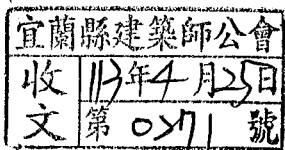 宜蘭縣建築師公會
收文
113年4月25日
第0271號